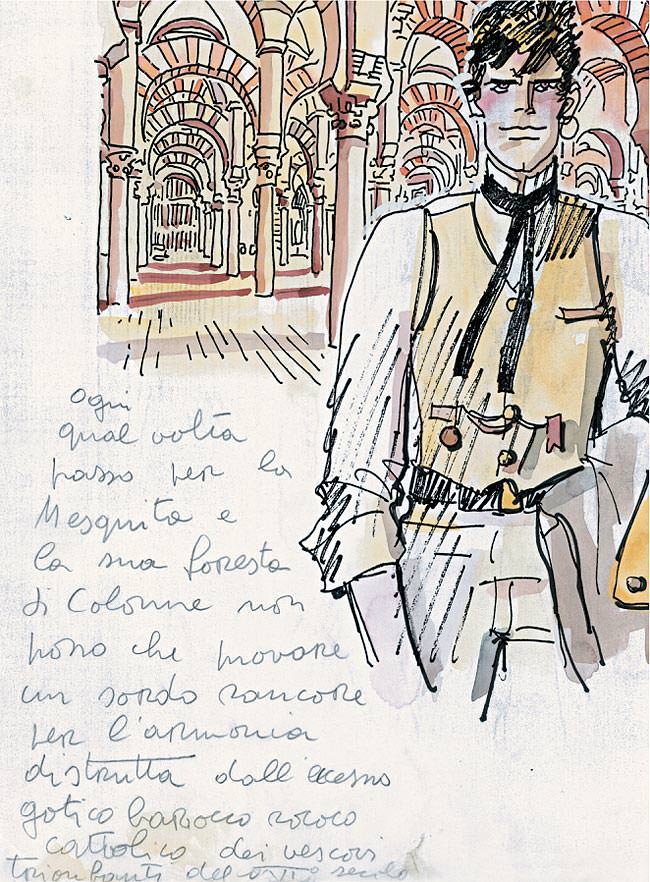 Ogni
qual volta
passo per la
Mesquita e
la sua foresta
di Colonne non
posso che provare
un sordo rancore
per l'armonia
distrutta dall'eccesso
gotico barocco rococo
cattolico dei vescovi
trionfanti del secolo